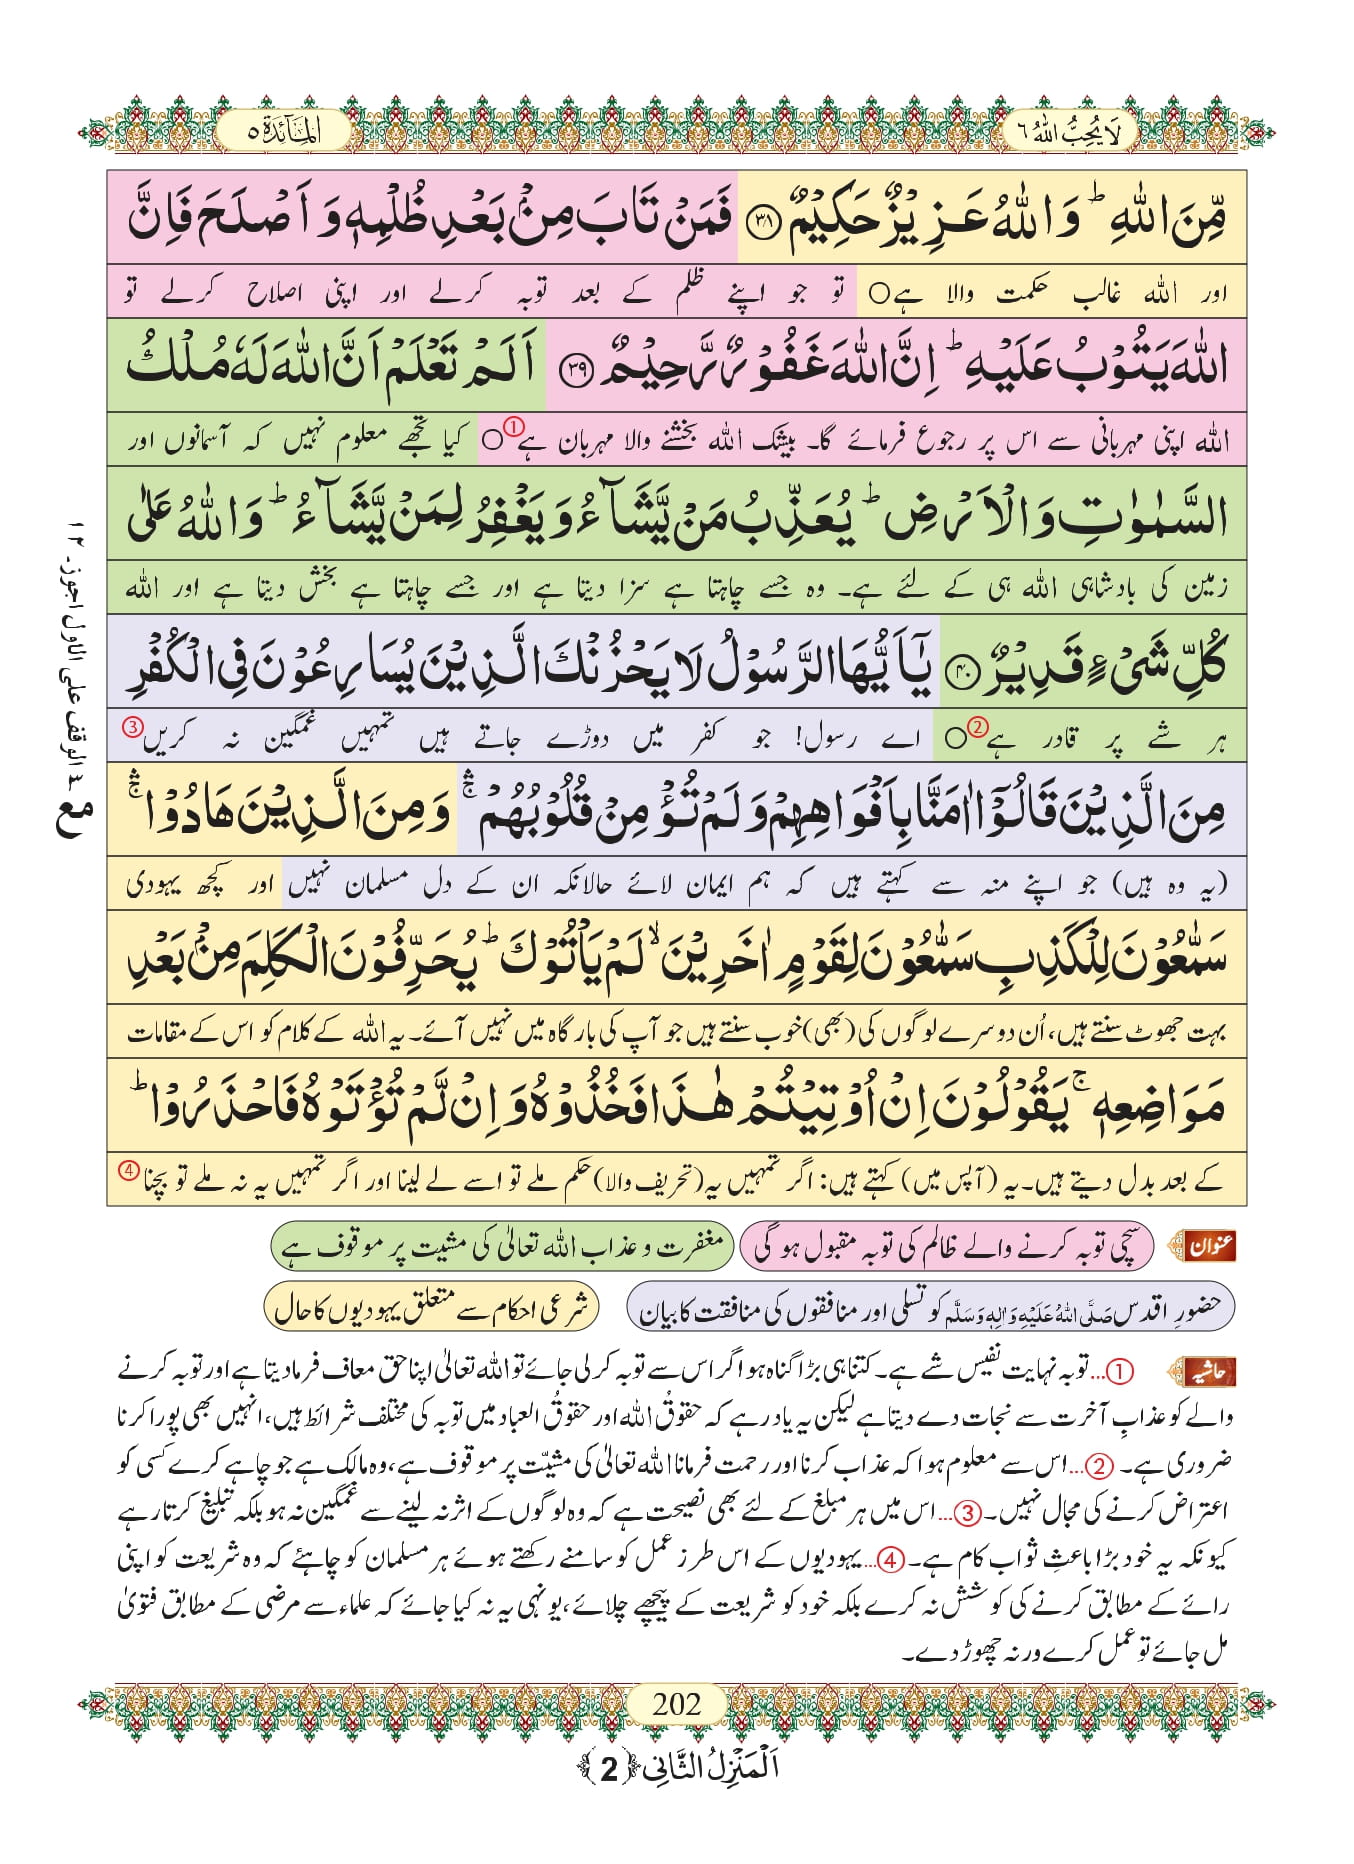 لَا یُحِبُّ اللّٰهُ ٦
اَلْمَآئِدَة ٥
مِّنَ اللّٰهِؕ وَ اللّٰهُ عَزِیْزٌ حَكِیْمٌ ﴿٣٨﴾ فَمَنْ تَابَ مِنْۢ بَعْدِ ظُلْمِهٖ وَ اَصْلَحَ فَاِنَّ
اور اللہ غالب حکمت والا ہے○ تو جو اپنے ظلم کے بعد توبہ کرلے اور اپنی اصلاح کرلے تو
اللّٰهَ یَتُوْبُ عَلَیْهِؕ اِنَّ اللّٰهَ غَفُوْرٌ رَّحِیْمٌ ﴿٣٩﴾ اَلَمْ تَعْلَمْ اَنَّ اللّٰهَ لَهٗ مُلْكُ
اللہ اپنی مہربانی سے اس پر رجوع فرمائے گا۔ بیشک اللہ بخشنے والا مہربان ہے①○ کیا تجھے معلوم نہیں کہ آسمانوں اور
السَّمٰوٰتِ وَ الْاَرْضِؕ یُعَذِّبُ مَنْ یَّشَآءُ وَ یَغْفِرُ لِمَنْ یَّشَآءُؕ وَ اللّٰهُ عَلٰى
زمین کی بادشاہی اللہ ہی کے لئے ہے۔ وہ جسے چاہتا ہے سزا دیتا ہے اور جسے چاہتا ہے بخش دیتا ہے اور اللہ
كُلِّ شَیْءٍ قَدِیْرٌ ﴿٤٠﴾ یٰۤاَیُّهَا الرَّسُوْلُ لَا یَحْزُنْكَ الَّذِیْنَ یُسَارِعُوْنَ فِی الْكُفْرِ
ہر شے پر قادر ہے②○ اے رسول! جو کفر میں دوڑے جاتے ہیں تمہیں غمگین نہ کریں③
مِنَ الَّذِیْنَ قَالُوْۤا اٰمَنَّا بِاَفْوَاهِهِمْ وَ لَمْ تُؤْمِنْ قُلُوْبُهُمْۛۚ وَ مِنَ الَّذِیْنَ هَادُوْاۛۚ
(یہ وہ ہیں) جو اپنے منہ سے کہتے ہیں کہ ہم ایمان لائے حالانکہ ان کے دل مسلمان نہیں اور کچھ یہودی
سَمّٰعُوْنَ لِلْكَذِبِ سَمّٰعُوْنَ لِقَوْمٍ اٰخَرِیْنَۙ لَمْ یَاْتُوْكَؕ یُحَرِّفُوْنَ الْكَلِمَ مِنْۢ بَعْدِ
بہت جھوٹ سنتے ہیں، اُن دوسرے لوگوں کی (بھی) خوب سنتے ہیں جو آپ کی بارگاہ میں نہیں آئے۔ یہ اللہ کے کلام کو اس کے مقامات
مَوَاضِعِهٖۚ یَقُوْلُوْنَ اِنْ اُوْتِیْتُمْ هٰذَا فَخُذُوْهُ وَ اِنْ لَّمْ تُؤْتَوْهُ فَاحْذَرُوْاؕ
کے بعد بدل دیتے ہیں۔ یہ (آپس میں) کہتے ہیں: اگر تمہیں یہ (تحریف والا) حکم ملے تو اسے لے لینا اور اگر تمہیں یہ نہ ملے تو بچنا④
عنوان سچی توبہ کرنے والے ظالم کی توبہ مقبول ہوگی مغفرت و عذاب اللہ تعالیٰ کی مشیت پر موقوف ہے
حضورِ اقدس صَلَّى اللّٰهُ عَلَیْهِ وَاٰلِهٖ وَسَلَّم کو تسلی اور منافقوں کی منافقت کا بیان شرعی احکام سے متعلق یہودیوں کا حال
حاشیہ ①...توبہ نہایت نفیس شے ہے۔ کتنا ہی بڑا گناہ ہو اگر اس سے توبہ کرلی جائے تو اللہ تعالیٰ اپنا حق معاف فرمادیتا ہے اور توبہ کرنے
والے کو عذابِ آخرت سے نجات دے دیتا ہے لیکن یہ یاد رہے کہ حقوقُ اللہ اور حقوقُ العباد میں توبہ کی مختلف شرائط ہیں، انہیں بھی پورا کرنا
ضروری ہے۔ ②...اس سے معلوم ہوا کہ عذاب کرنا اور رحمت فرمانا اللہ تعالیٰ کی مشیّت پر موقوف ہے، وہ مالک ہے جو چاہے کرے کسی کو
اعتراض کرنے کی مجال نہیں۔ ③...اس میں ہر مبلغ کے لئے بھی نصیحت ہے کہ وہ لوگوں کے اثر نہ لینے سے غمگین نہ ہو بلکہ تبلیغ کرتا رہے
کیونکہ یہ خود بڑا باعثِ ثواب کام ہے۔ ④...یہودیوں کے اس طرز عمل کو سامنے رکھتے ہوئے ہر مسلمان کو چاہئے کہ وہ شریعت کو اپنی
رائے کے مطابق کرنے کی کوشش نہ کرے بلکہ خود کو شریعت کے پیچھے چلائے، یونہی یہ نہ کیا جائے کہ علماء سے مرضی کے مطابق فتویٰ
مل جائے تو عمل کرے ورنہ چھوڑ دے۔
202
اَلْمَنْزِلُ الثَّانِی ﴿2﴾